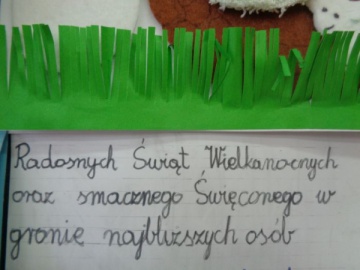 Radosnych Świąt Wielkanocnych
oraz smacznego Święconego w
gronie najbliższych osób